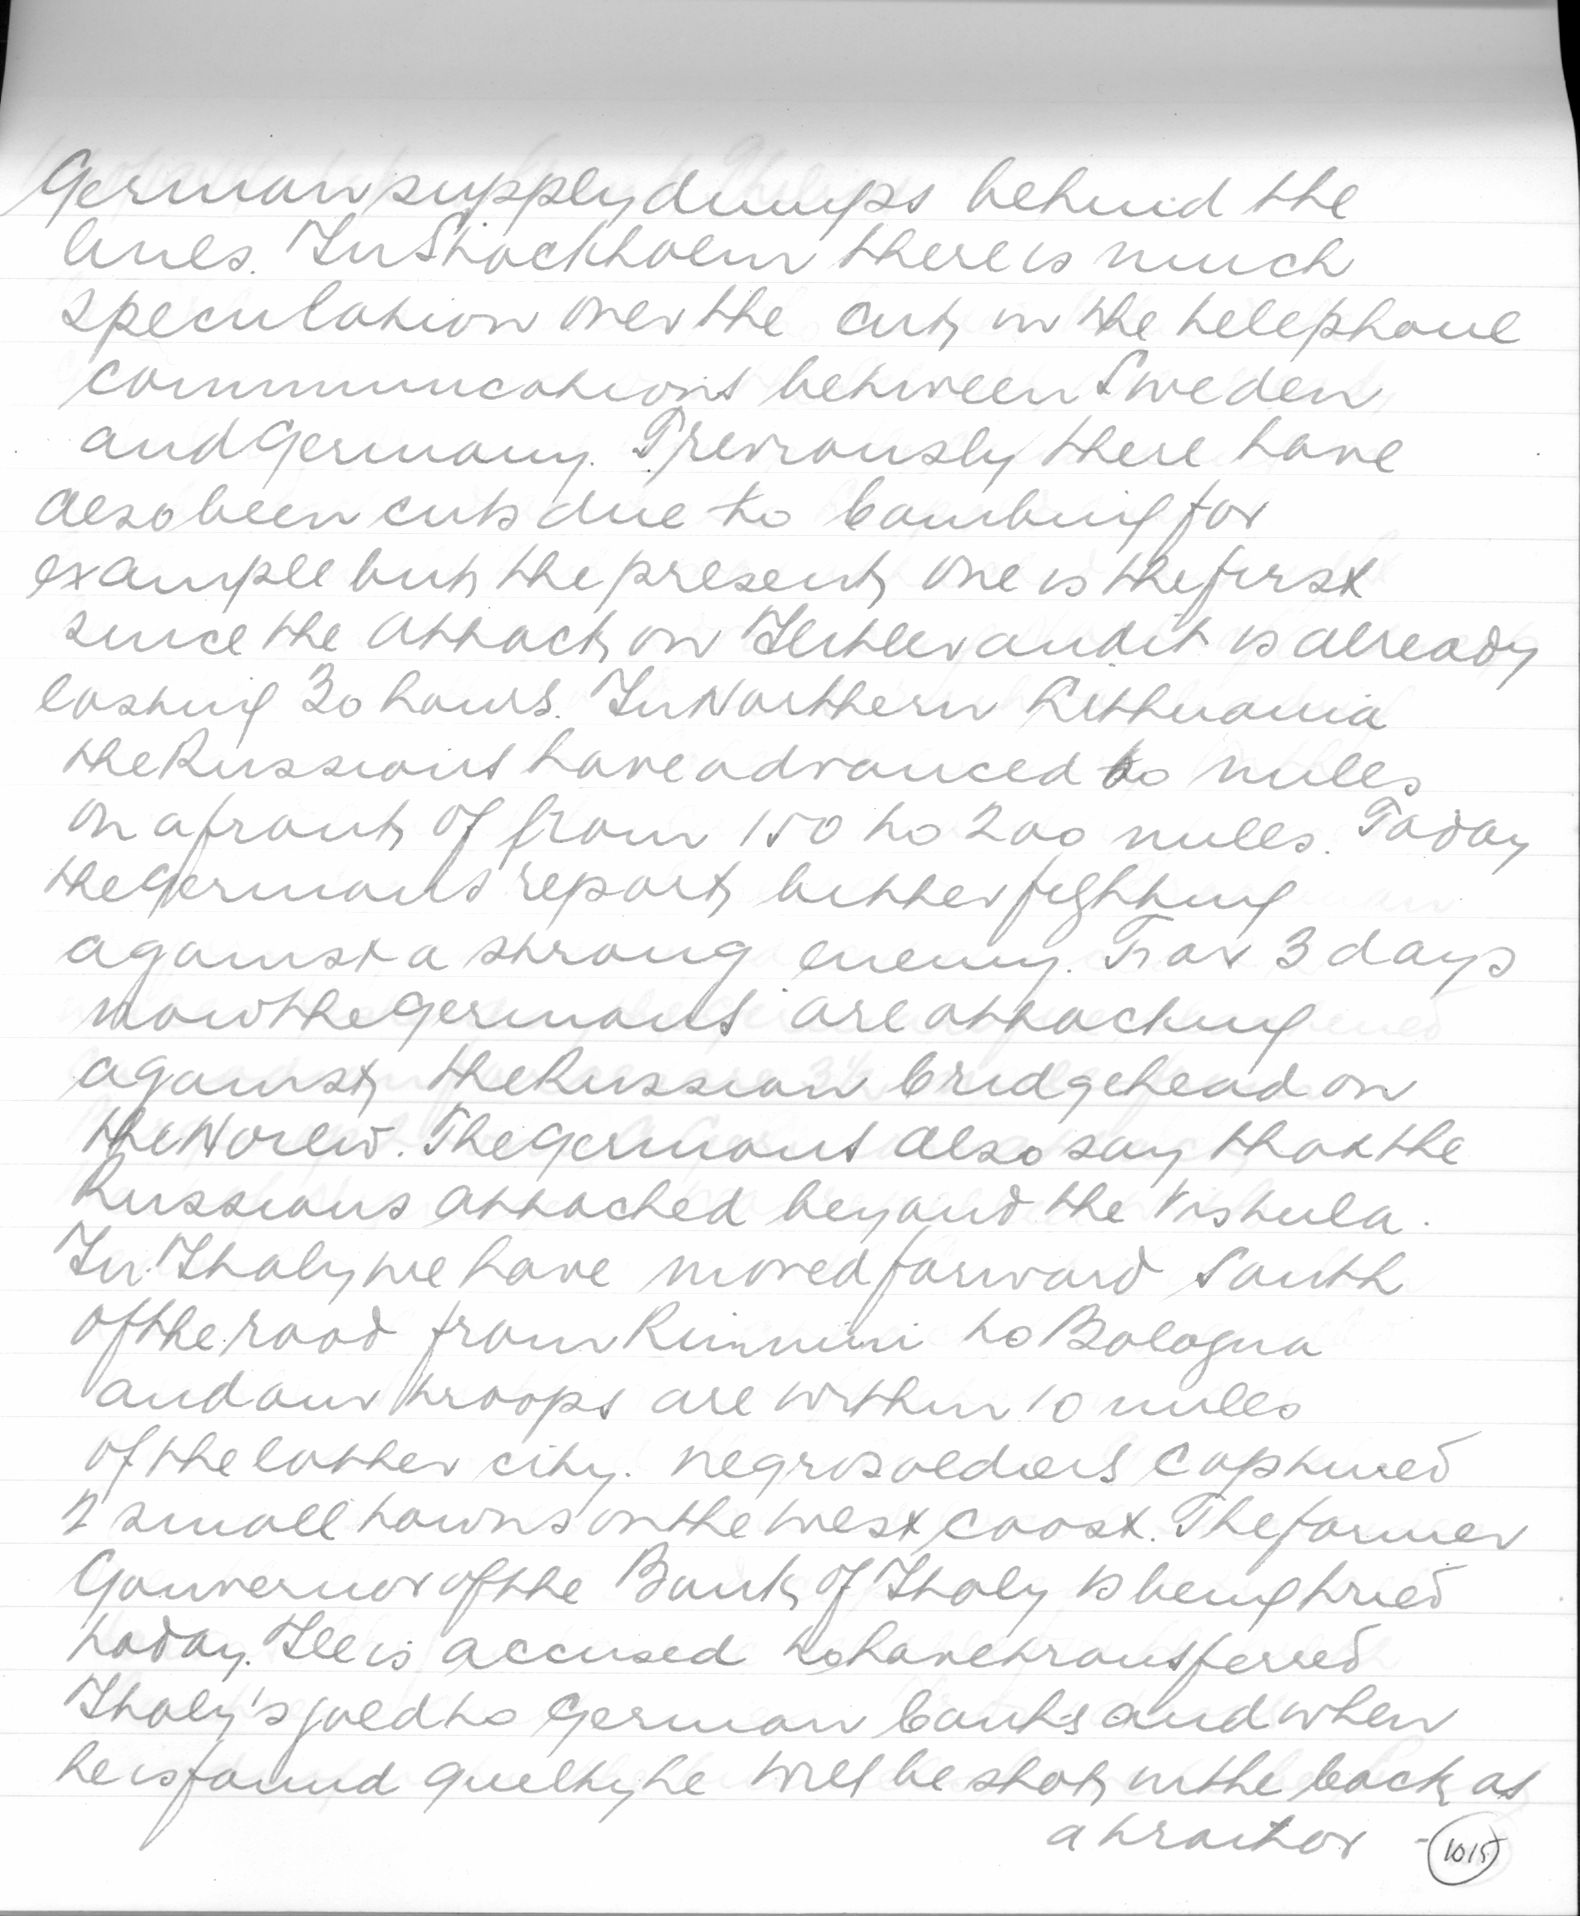 German supply dumps behind the
lines. In Stockholm there is much
speculation over the cut in the telephone
communications between Sweden
and Germany. Previously there have
also been cuts due to bombing for
example but the present one is the first
since the attack on Hitler and it is already
lasting 30 hours. In Northern Lithuania
the Russians have advanced to miles
on a front of from 150 to 200 miles. Today
the Germans report bitter fighting
against a strong enemy. For 3 days
now the Germans are attacking
against the Russian bridgehead on
the Narew. The Germans also say that the
Russians attacked beyond the Vistula.
In Italy we have moved forward South
of the road from Rimini to Bologna
and our troops are within 10 miles
of the latter city. negro soldiers captured
2 small towns on the west coast. The former
Gouvernor of the Bank of Italy is being tried
today. He is accused to have transferred
Italy's gold to German banks and when
he is found guilty he will be shot in the back as
a traitor - 1015